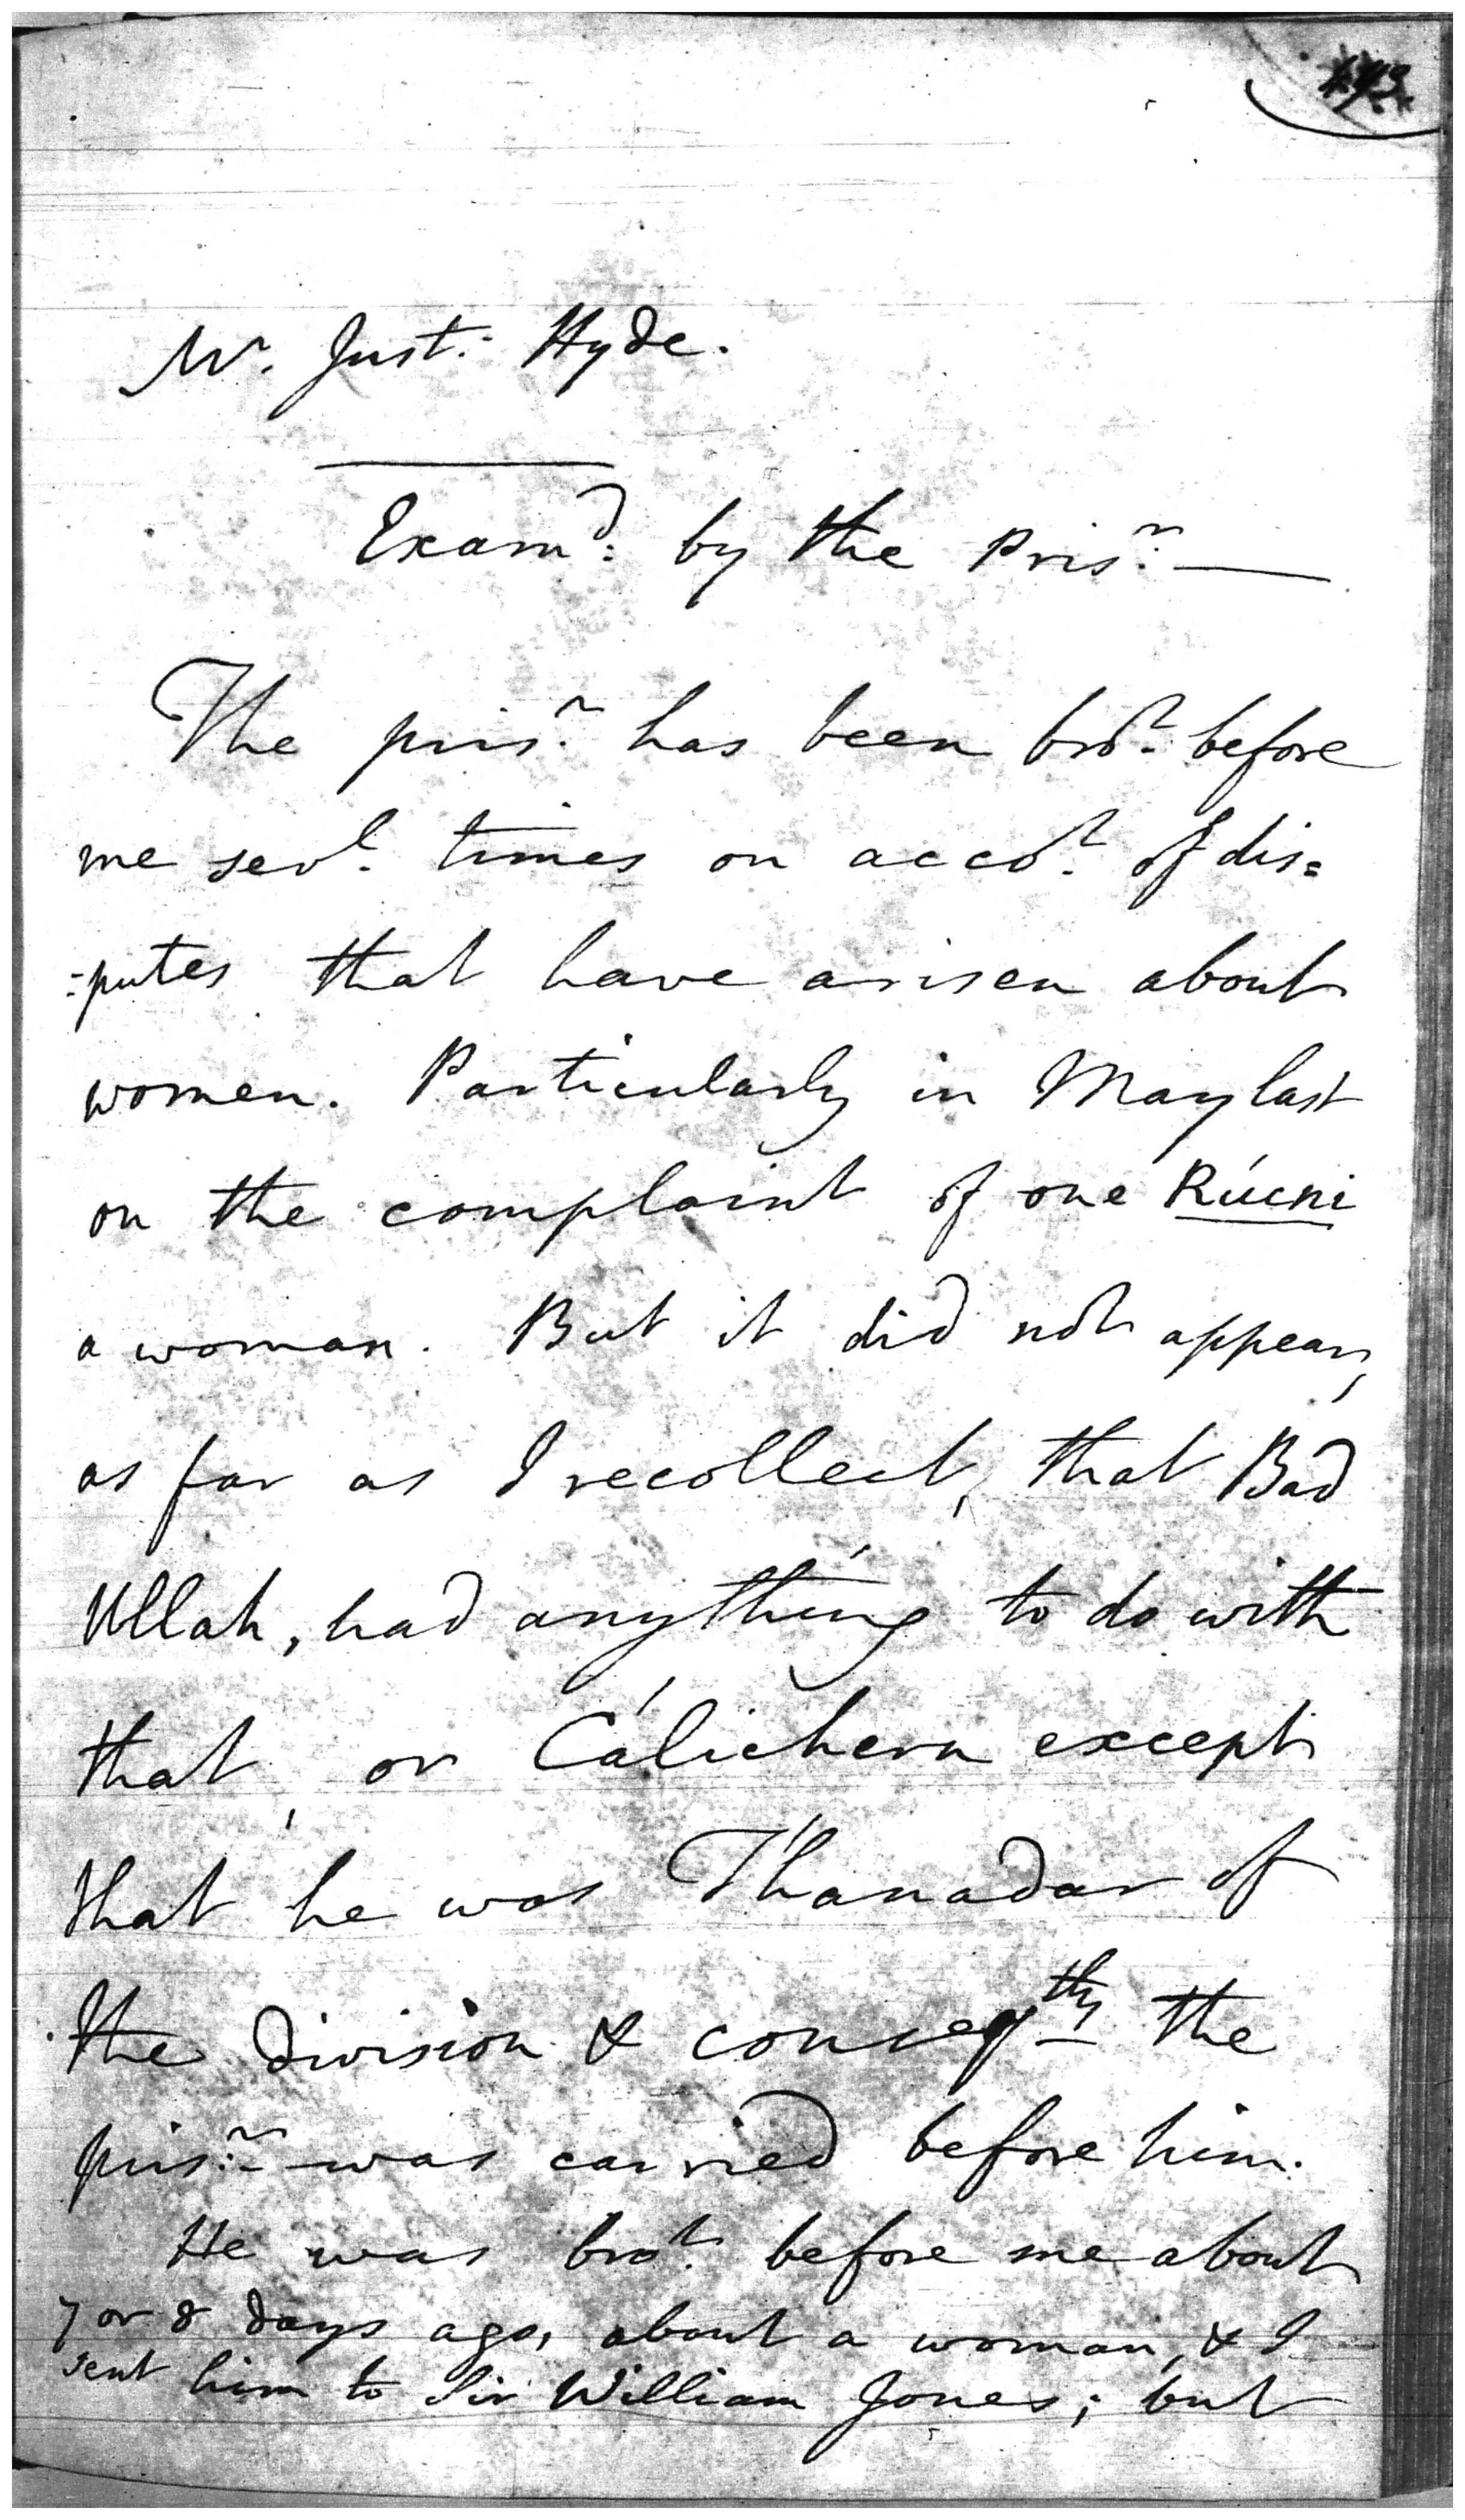 Mr. Just: Hyde.
Examd: by the Prisr:
The prisr: has been brot. before
me sevl. times on accot. of dis=
=putes that have arisen about
women. Particularly in May last
on the complaint of one Rúcni
a woman. But it did not appear,
as far as I recollect, that Bad
Ullah, had anything to do with
that, or Cálichern except
that he was Thánadar of
the division & conseqtly the
prisr: was carried before him.
He was brot: before me about
7 or 8 days ago, about a woman, & I
sent him to Sir William Jones; but